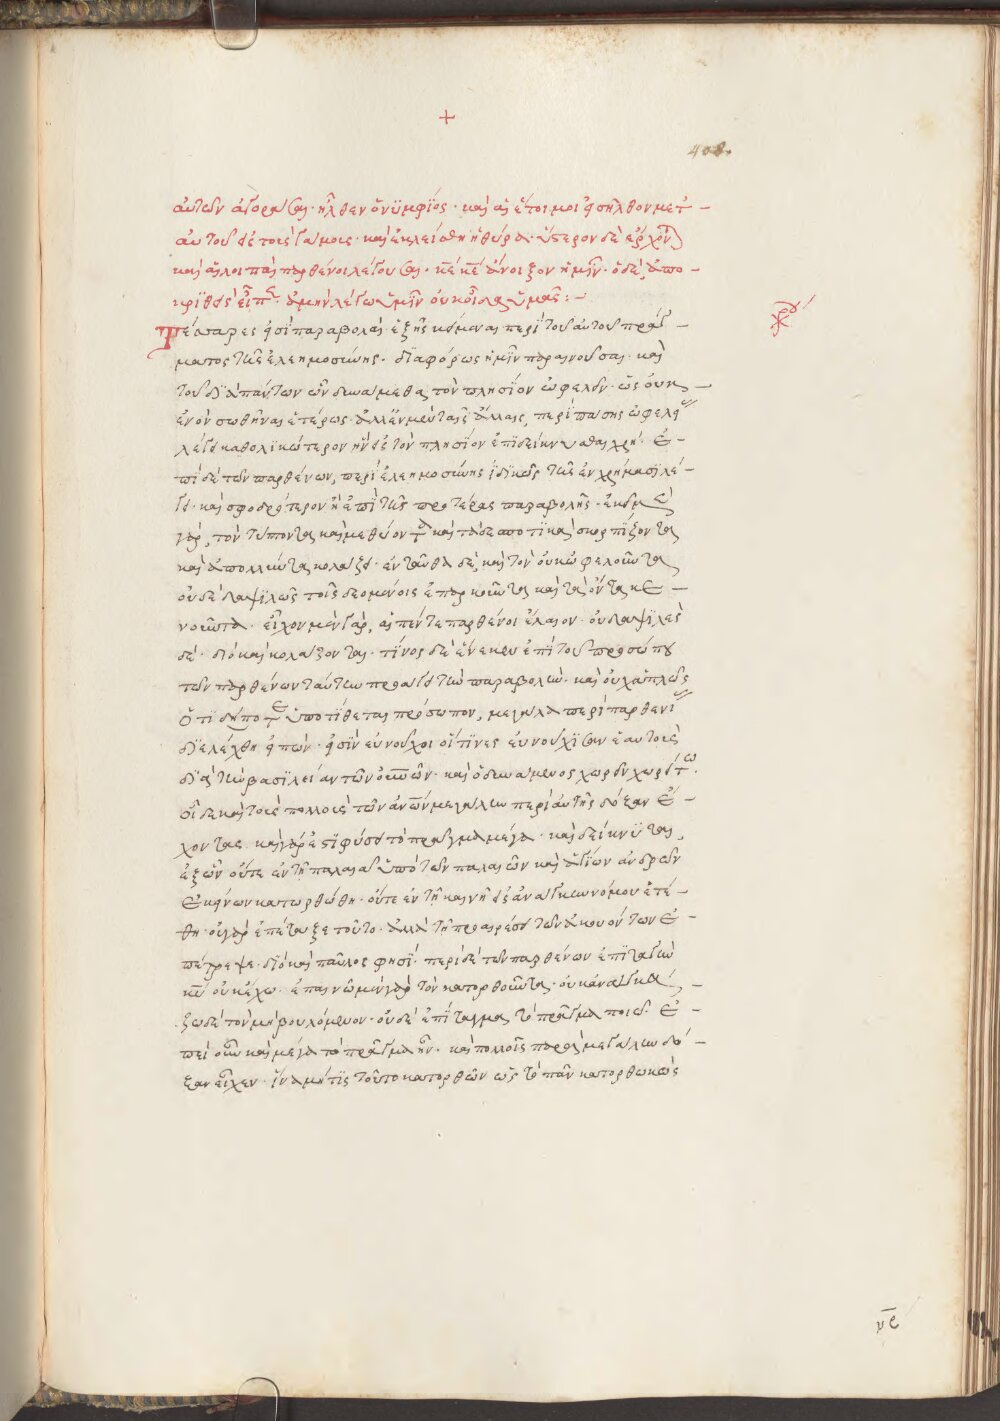 +
408.
αὐτῶν ἀγοράσαι· ἦλθεν ὁ νϋμφίος· καὶ αἱ ἕτοιμοι εἰσῆλθον μετ
αὐτοῦ εἰς τοὺς γάμους· καὶ ἐκλείσθη ἡ θύρα· ὕστερον δὲ ἔρχον
καὶ αἱ λοιπαὶ παρθένοι λέγουσαι· κε κε ἄνοιξον ἡμῖν· ὁ δὲ ἀπο
κριθεὶς εἶπεν· ἀμὴν λέγω ὑμῖν οὐκ οἶδα ὑμᾶς:
χρυ
Τέσσαρες εἰσὶ παραβολαὶ ἑξῆς κείμεναι περὶ τοῦ αὐτοῦ πράγ
ματος τῆς ἐλεημοσύνης· διαφόρως ἡμῖν παραινοῦσαι· καὶ
τοῦ διὰ πάντων ὧν δυνάμεθα τὸν πλησίον ὠφελεῖν· ὡς οὐκ
ἐνὸν σωθῆναι ἑτέρως· ἀλλ' ἐν μὲν ταῖς ἄλλαις, περὶ πάσης ὠφελείας
λέγει καθολικώτερον ἣν εἰς τὸν πλησίον ἐπιδείκνυσθαι χρή· ἐ
πὶ δὲ τῶν παρθένων, περὶ ἐλεημοσύνης ἰδικῶς τῆς ἐν χρήμασι λέ
γει· καὶ σφοδρότερον ἢ ἐπὶ τῆς προτέρας παραβολῆς· ἐκεῖ μὲν
γὰρ, τὸν τύπτοντα καὶ μεθύοντα καὶ τὰ δεσποτικὰ σκορπίζοντα
καὶ ἀπολλύντα κολάζει· ἐνταῦθα δὲ, καὶ τὸν οὐκ ὠφελοῦντα
οὐδὲ δαψιλῶς τοῖς δεομένοις ἐπαρκοῦντα καὶ τὰ ὄντα κε
νοῦντα· εἶχον μὲν γὰρ, αἱ πέντε παρθένοι ἔλαιον· οὐ δαψιλὲς
δέ· διὸ καὶ κολάζονται· τίνος δὲ ἕνεκεν ἐπὶ τοῦ προσώπου
τῶν παρθένων ταύτην προάγει τὴν παραβολὴν· καὶ οὐχ ἁπλῶς
ὅτι δήποτε ὑποτίθεται πρόσωπον, μεγάλα περὶ παρθενίας
διελέχθη εἰπών· εἰσὶν εὐνοῦχοι οἵτινες εὐνούχισαν ἑαυτοὺς
διὰ τὴν βασιλείαν τῶν οὐνῶν· καὶ ὁ δυνάμενος χωρεῖν χωρείτω.
οἶδε καὶ τοὺς πολλοὺς τῶν ἀνων μεγάλην περὶ αὐτῆς δόξαν ἔ
χοντας. καὶ γάρ ἐστι φύσει τὸ πρᾶγμα μέγα· καὶ δείκνυται,
ἐξ ὧν οὔτε ἐν τῇ παλαιᾷ ὑπὸ τῶν παλαιῶν καὶ ἁγίων ἀνδρῶν
ἐκείνων κατωρθώθη· οὔτε ἐν τῇ καινῇ εἰς ἀνάγκην νόμου ἐτέ
θη· οὐ γὰρ ἐπέταξε τοῦτο· ἀλλὰ τῇ προαιρέσει τῶν ἀκουόντων ἐ
πέτρεψε· διὸ καὶ παῦλος φησί· περὶ δὲ τῶν παρθένων ἐπιταγὴν
κυ οὐκ ἔχω· ἐπαινῶ μὲν γὰρ τὸν κατορθοῦντα· οὐκ ἀναγκά
ζω δὲ τὸν μὴ βουλόμενον· οὐδὲ ἐπίταγμα τὸ πρᾶγμα ποιεῖ· ἐ
πεὶ οὖν καὶ μέγα τὸ πρᾶγμα ἦν· καὶ πολλοῖς παρὰ μεγάλην δό
ξαν εἶχεν· ἵνα μή τις τοῦτο κατορθῶν ὡς τὸ πᾶν κατορθωκὼς
νε